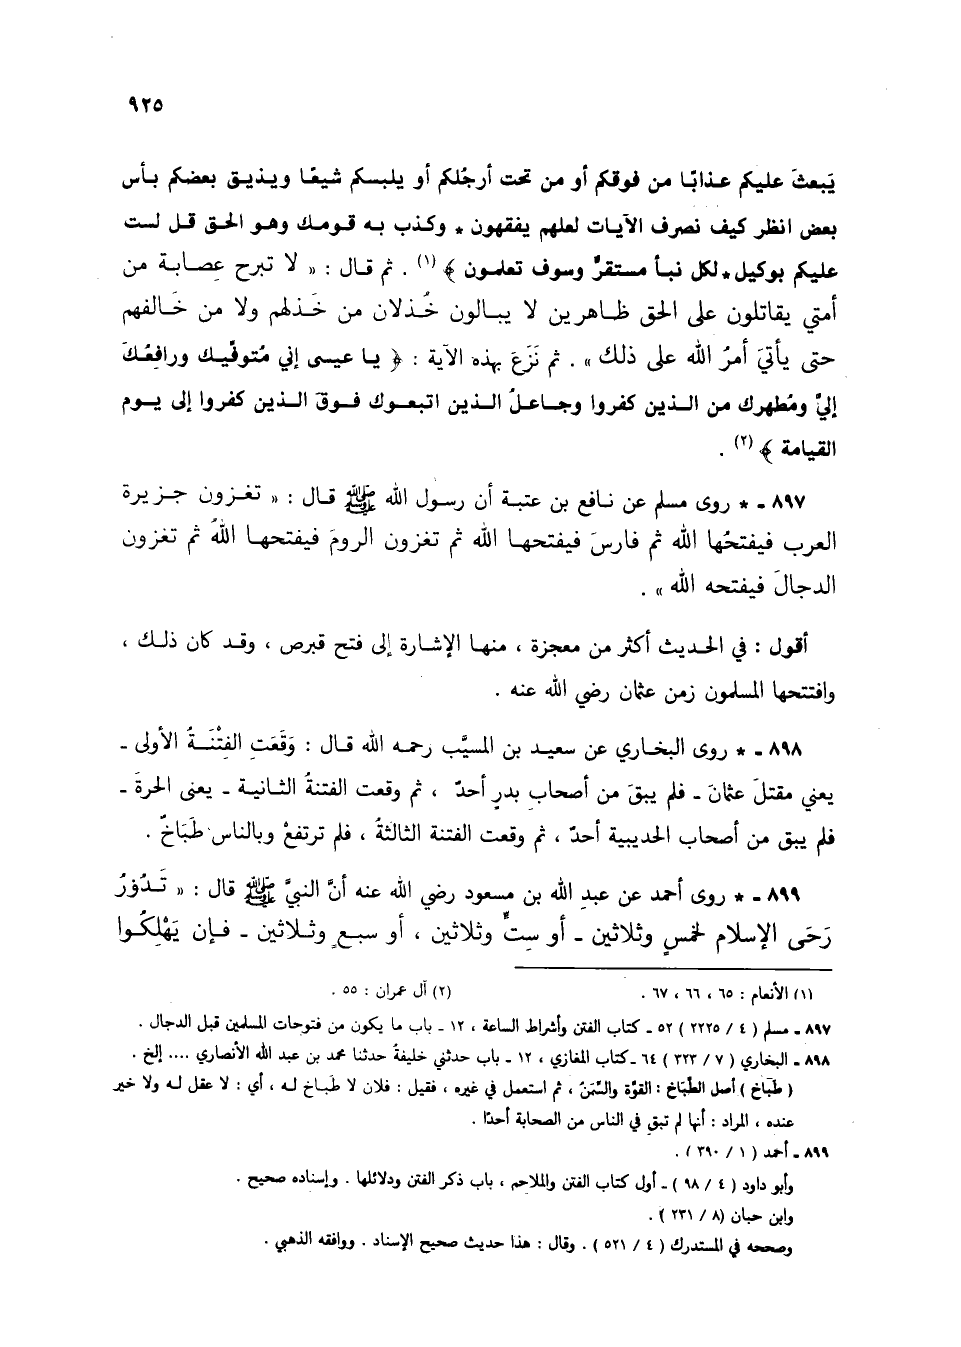 ٩٢٥
يَبعثَ عليكم عـذابًا من فوقكم أو من تحت أرجُلكم أو يلبسكم شيعًا ويـذيـق بعضكم بـأس
بعض انظر كيف نصرف الآيات لعلهم يفقهون * وكذب بـه قـومـك وهـو الحـق قـل لست
عليكم بوكيل * لكل نبـأ مستقرٌّ وسوف تعلمـون ﴾ (١) . ثم قـال : « لا تبرح عصـابـة من
أمتي يقاتلون على الحق ظـاهرين لا يبـالون خُـذلان من خَـذلهم ولا من خَـالفهم
حتى يأتيَ أمرُ الله على ذلك » . ثم نَزَعَ بهذه الآية : ﴿ يـا عيسى إني مُتوفِّيـك ورافِعُـكَ
إليَّ ومُطهرك من الـذين كفروا وجـاعـلُ الـذين اتبعـوك فـوق الـذين كفروا إلى يـوم
القيامة ﴾ (٢) .
٨٩٧ ـ * روى مسلم عن نـافع بن عتبـة أن رسـول الله ﷺ قـال : « تغـزون جـزيرة
العرب فيفتحُها الله ثم فارسَ فيفتحهـا الله ثم تغزون الرومَ فيفتحهـا اللهُ ثم تغزون
الدجالَ فيفتحه الله » .
أقول : في الحديث أكثر من معجزة ، منهـا الإشـارة إلى فتح قبرص ، وقـد كان ذلـك ،
وافتتحها المسلمون زمن عثمان رضي الله عنه .
٨٩٨ ـ * روى البخـاري عن سعيـد بن المسيَّب رحمـه الله قـال : وَقَعَتِ الفِتْنَـةُ الأولى ـ
يعني مقتلَ عثمانَ ـ فلم يبقَ من أصحابِ بدرٍ أحدٌ ، ثم وقعت الفتنةُ الثـانيـة ـ يعنى الحرةَ ـ
فلم يبق من أصحاب الحديبية أحدٌ ، ثم وقعت الفتنة الثالثةُ ، فلم ترتفعْ وبالناس طَبَاخٌ .
٨٩٩ ـ * روى أحمد عن عبدِ الله بن مسعود رضي الله عنه أنَّ النبيَّ ﷺ قال : « تَـدُوْرُ
رَحَى الإسلام لخمسٍ وثلاثين ـ أو ستٍّ وثلاثين ، أو سبـعٍ وثـلاثين ـ فـإن يَهْلِكُـوا
(١) الأنعام : ٦٥ ، ٦٦ ، ٦٧ . (٢) آل عمران : ٥٥ .
٨٩٧ ـ مسلم ( ٤ / ٢٢٢٥ ) ٥٢ ـ كتاب الفتن وأشراط الساعة ، ١٢ ـ باب ما يكون من فتوحات المسلمين قبل الدجال .
٨٩٨ ـ البخاري ( ٧ / ٣٢٣ ) ٦٤ ـ كتاب المغازي ، ١٢ ـ باب حدثني خليفةُ حدثنا محمد بن عبد الله الأنصاري .... إلخ .
( طَبَاخ ) أصل الطَّبَاخ : القوَّة والسِّمَنُ ، ثم استعمل في غيره ، فقيل : فلان لا طَبـاخ لـه ، أي : لا عقل لـه ولا خير
عنده ، المراد : أنها لم تبقِ في الناس من الصحابة أحدًا .
٨٩٩ ـ أحمد ( ١ / ٣٩٠ ) .
وأبو داود ( ٤ / ٩٨ ) ـ أول كتاب الفتن والملاحم ، باب ذكر الفتن ودلائلها . وإسناده صحيح .
وابن حبان ( ٨ / ٢٣١ ) .
وصححه في المستدرك ( ٤ / ٥٢١ ) . وقال : هذا حديث صحيح الإسناد . ووافقه الذهبي .